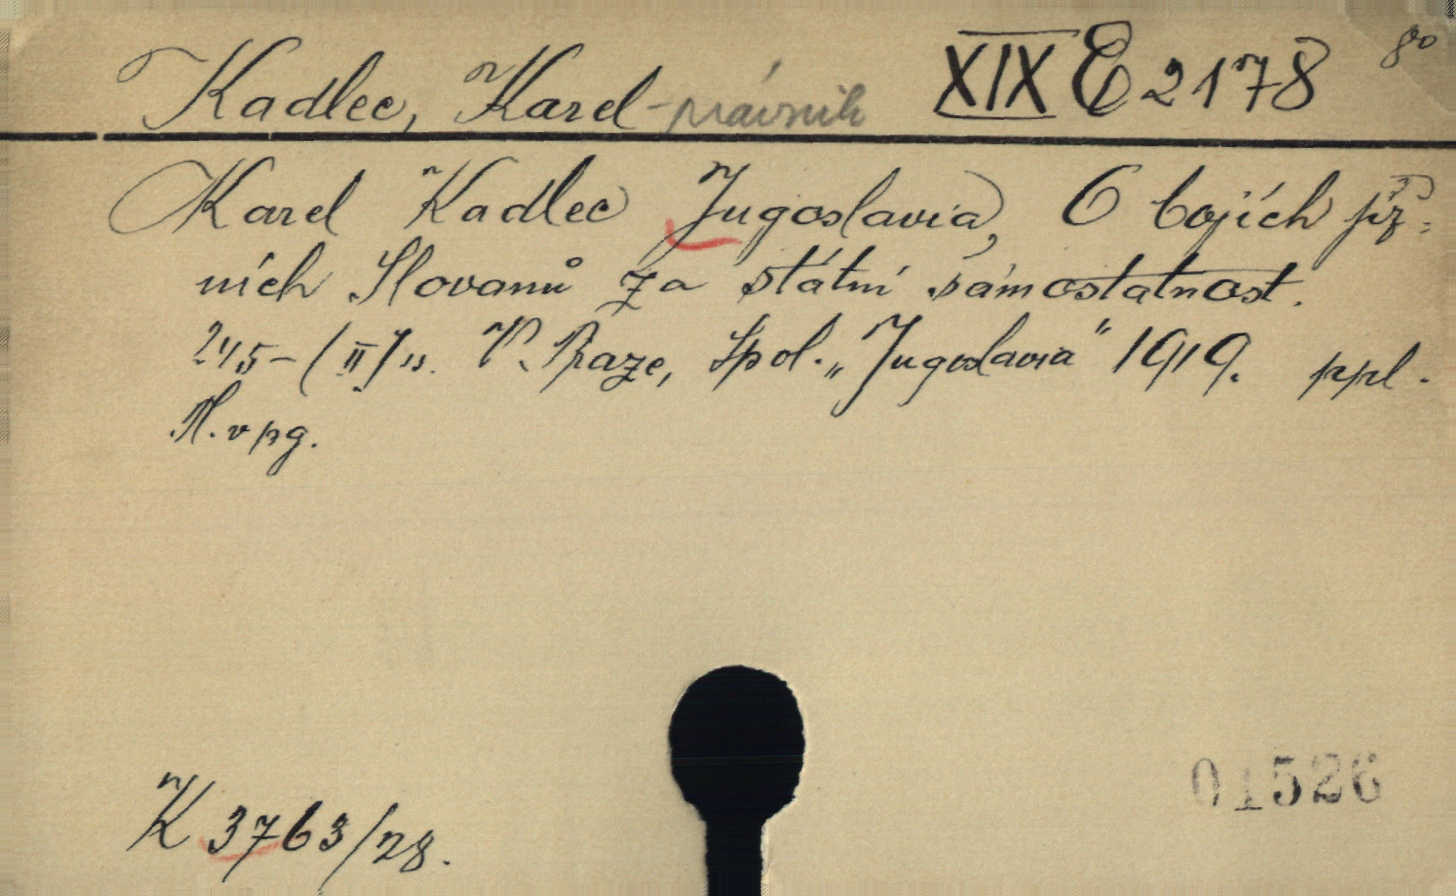 Kadlec, Karel - právník XIX E 2178 8°
Karel Kadlec Jugoslavia, O bojích již-
ních Slovanů za státní samostatnost.
245-(II) s. V Praze, Spol. „Jugoslavia" 1919. ppl.
N. v pg.
K 3763/28.
01526